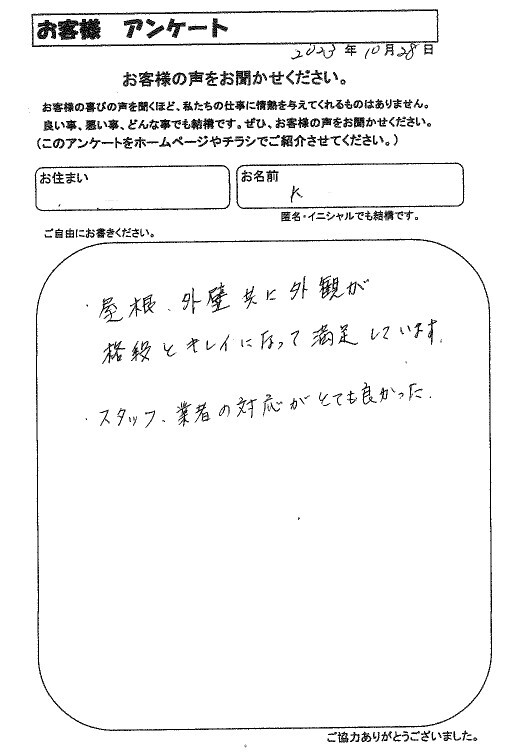 お客様 アンケート
2023 年 10 月 28 日
お客様の声をお聞かせください。
お客様の喜びの声を聞くほど、私たちの仕事に情熱を与えてくれるものはありません。
良い事、悪い事、どんな事でも結構です。ぜひ、お客様の声をお聞かせください。
(このアンケートをホームページやチラシでご紹介させてください。)
お住まい
お名前
K
匿名・イニシャルでも結構です。
ご自由にお書きください。
・屋根、外壁共に外観が
格段とキレイになって満足しています。
・スタッフ、業者の対応がとても良かった.
ご協力ありがとうございました。